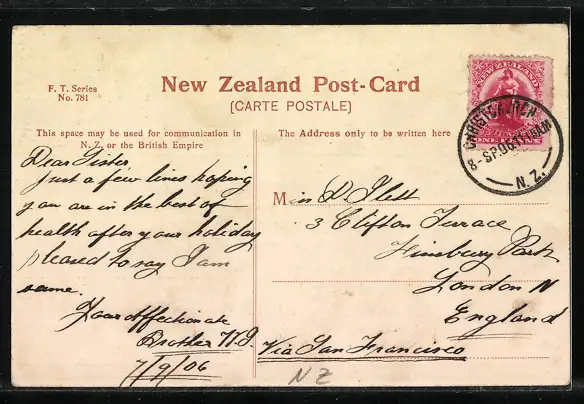 F. T. Series
No. 781
New Zealand Post-Card
(CARTE POSTALE)
This space may be used for communication in
N. Z. or the British Empire
The Address only to be written here
NEW ZEALAND
ONE PENNY
N.Z.
Dear Sister
Just a few lines hoping
you are in the best of
health after your holiday
pleased to say I am
same.
Your affectionate
Brother
7/9/06
Miss
3 Clifton Terrace
Finsbury Park
London N
England
Via San Francisco
NZ